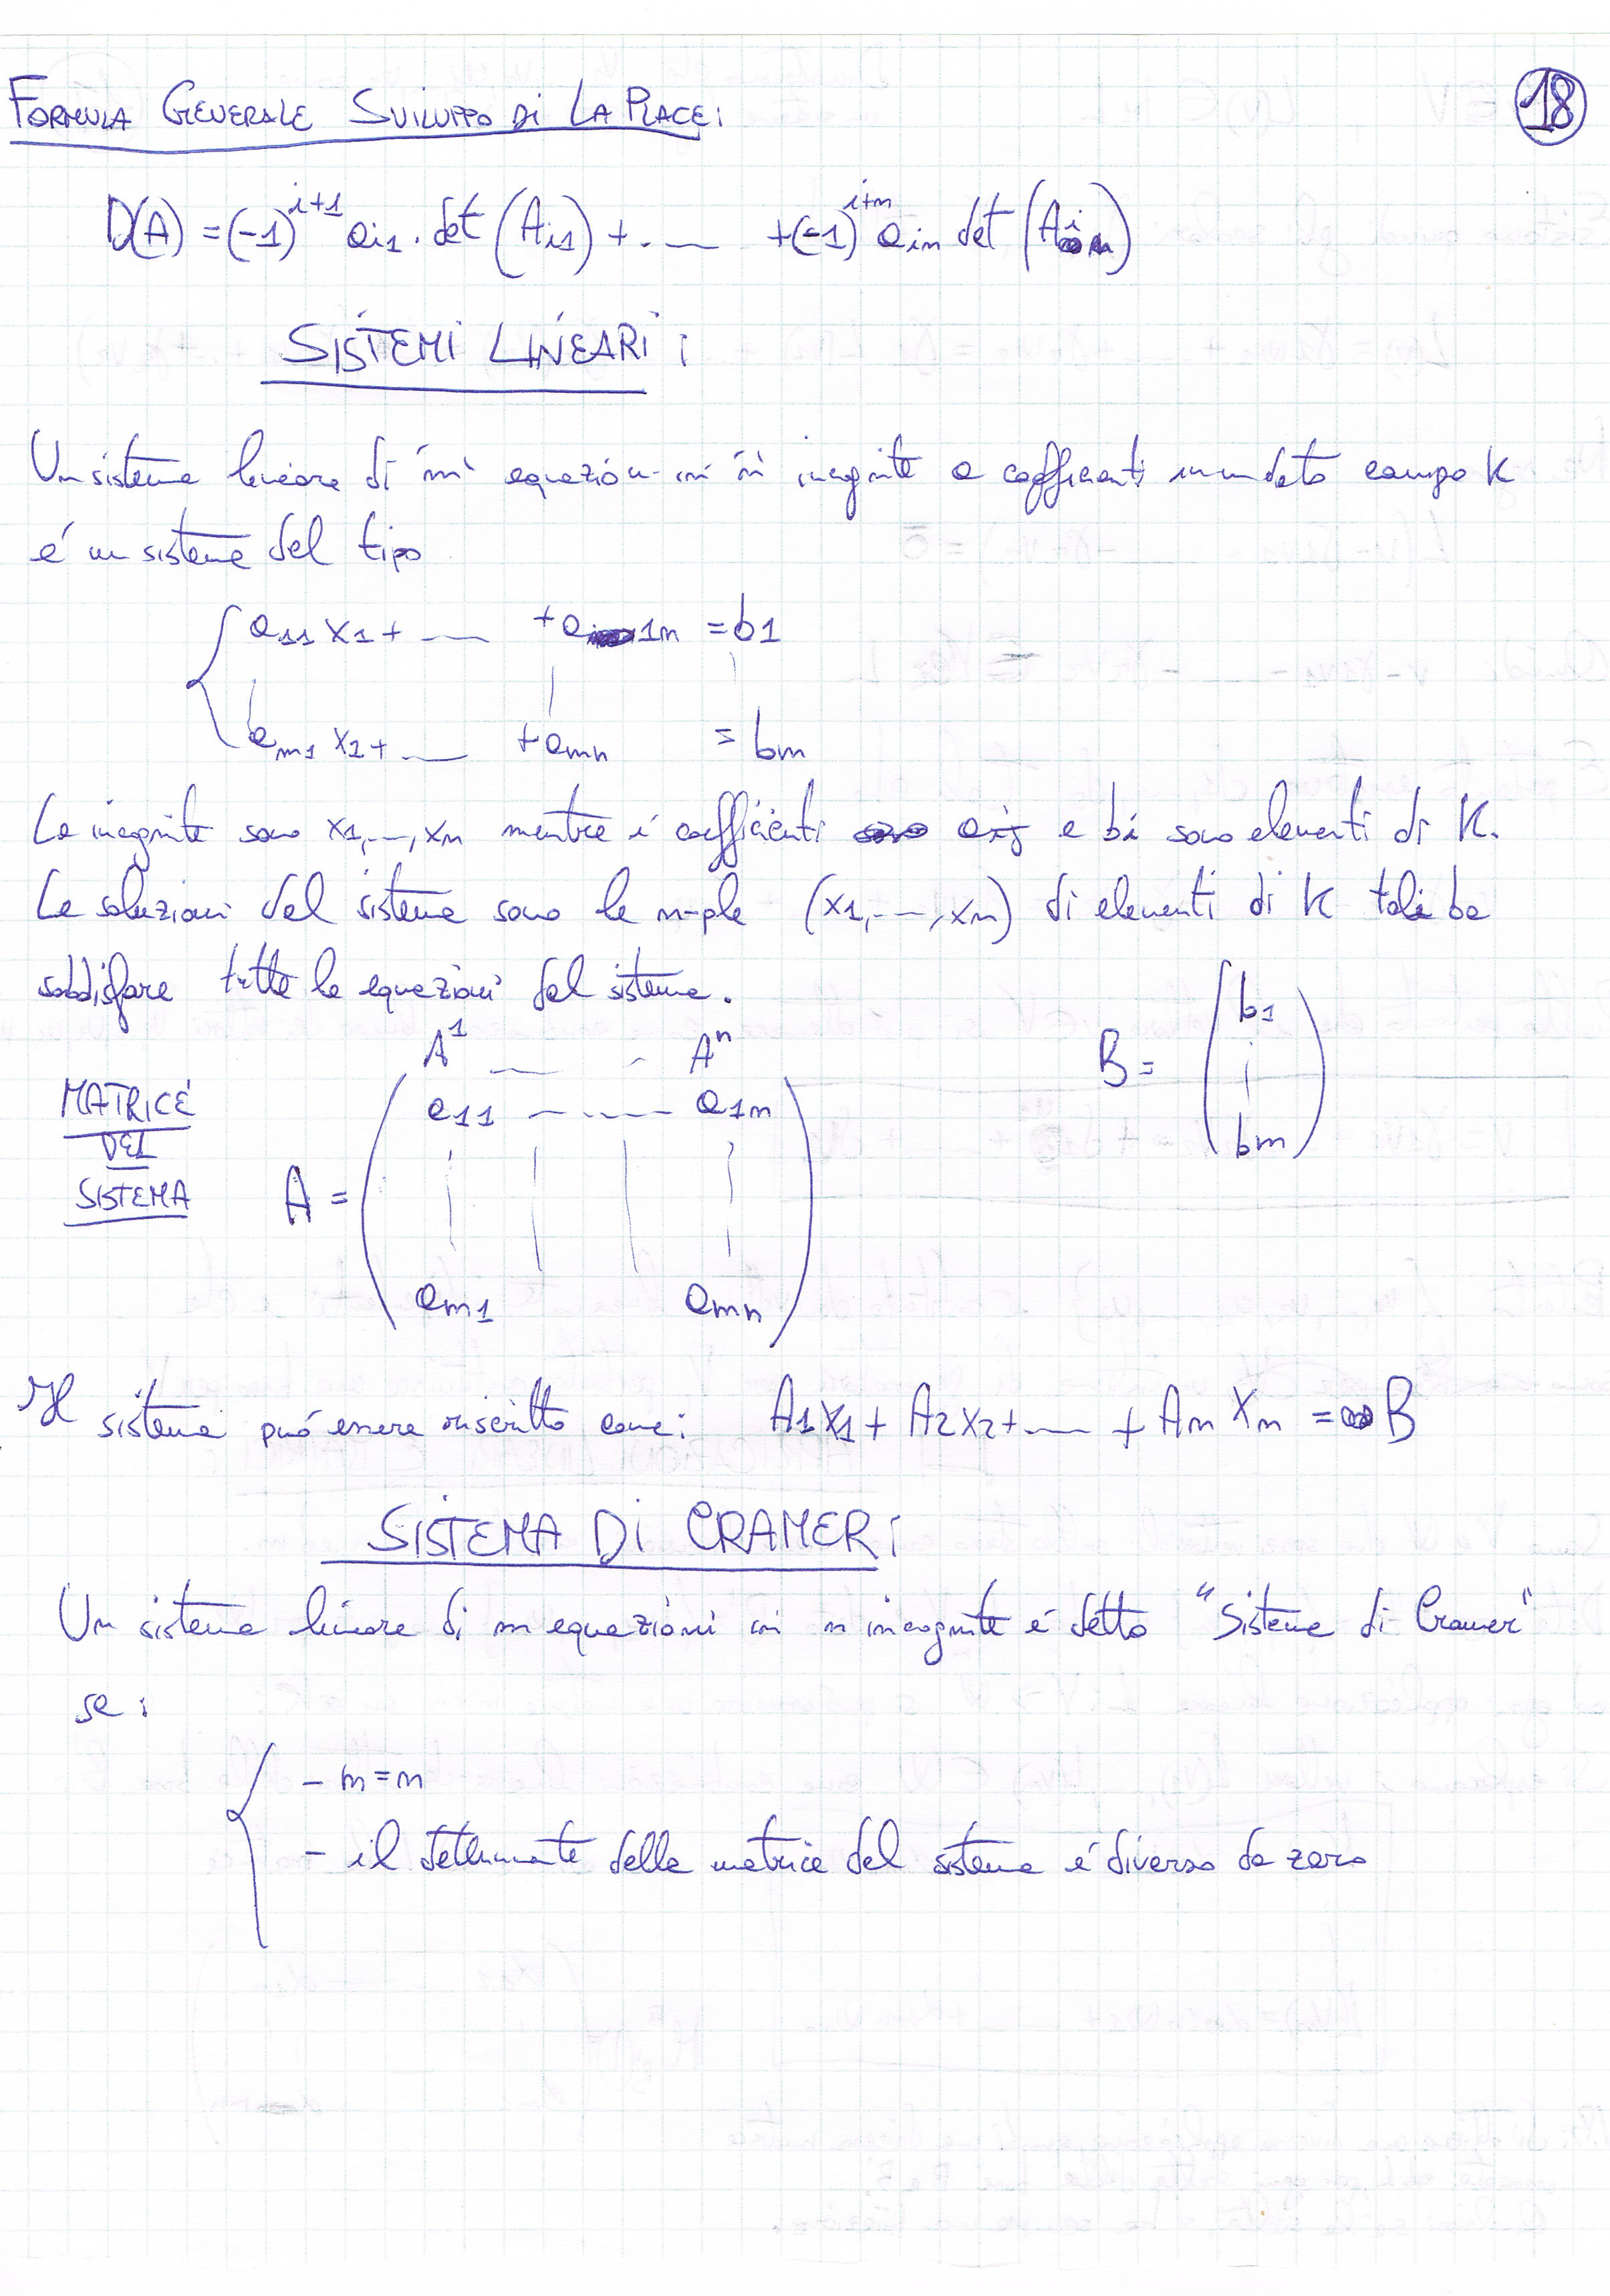 18
FORMULA GENERALE SVILUPPO DI LA PLACE:
D(A) = (-1)^{i+1} a_{i1} . det (A_{i1}) + . __ +(-1)^{i+n} a_{in} det (A_{in})
SISTEMI LINEARI:
Un sistema lineare di 'm' equazioni in 'n' incognite a coefficienti in un dato campo K
é un sistema del tipo
a11 x1 + .__ +a1n = b1
am1 x1 + .__ +amn = bm
Le incognite sono x1,.-,xn mentre i coefficienti aij e bi sono elementi di K.
Le soluzioni del sistema sono le n-ple (x1,.--,xn) di elementi di K tali da
soddisfare tutte le equazioni del sistema.
A^1 __ - A^n
MATRICE
DEL
SISTEMA
A = ( a11 -.-..- a1n
am1 amn )
B = ( b1
bm )
Il sistema può essere riscritto come: A1x1 + A2x2+.__ + An xn = B
SISTEMA DI CRAMER:
Un sistema lineare di m equazioni in n incognite é detto "Sistema di Cramer"
se:
- m = n
- il determinante della matrice del sistema é diverso da zero